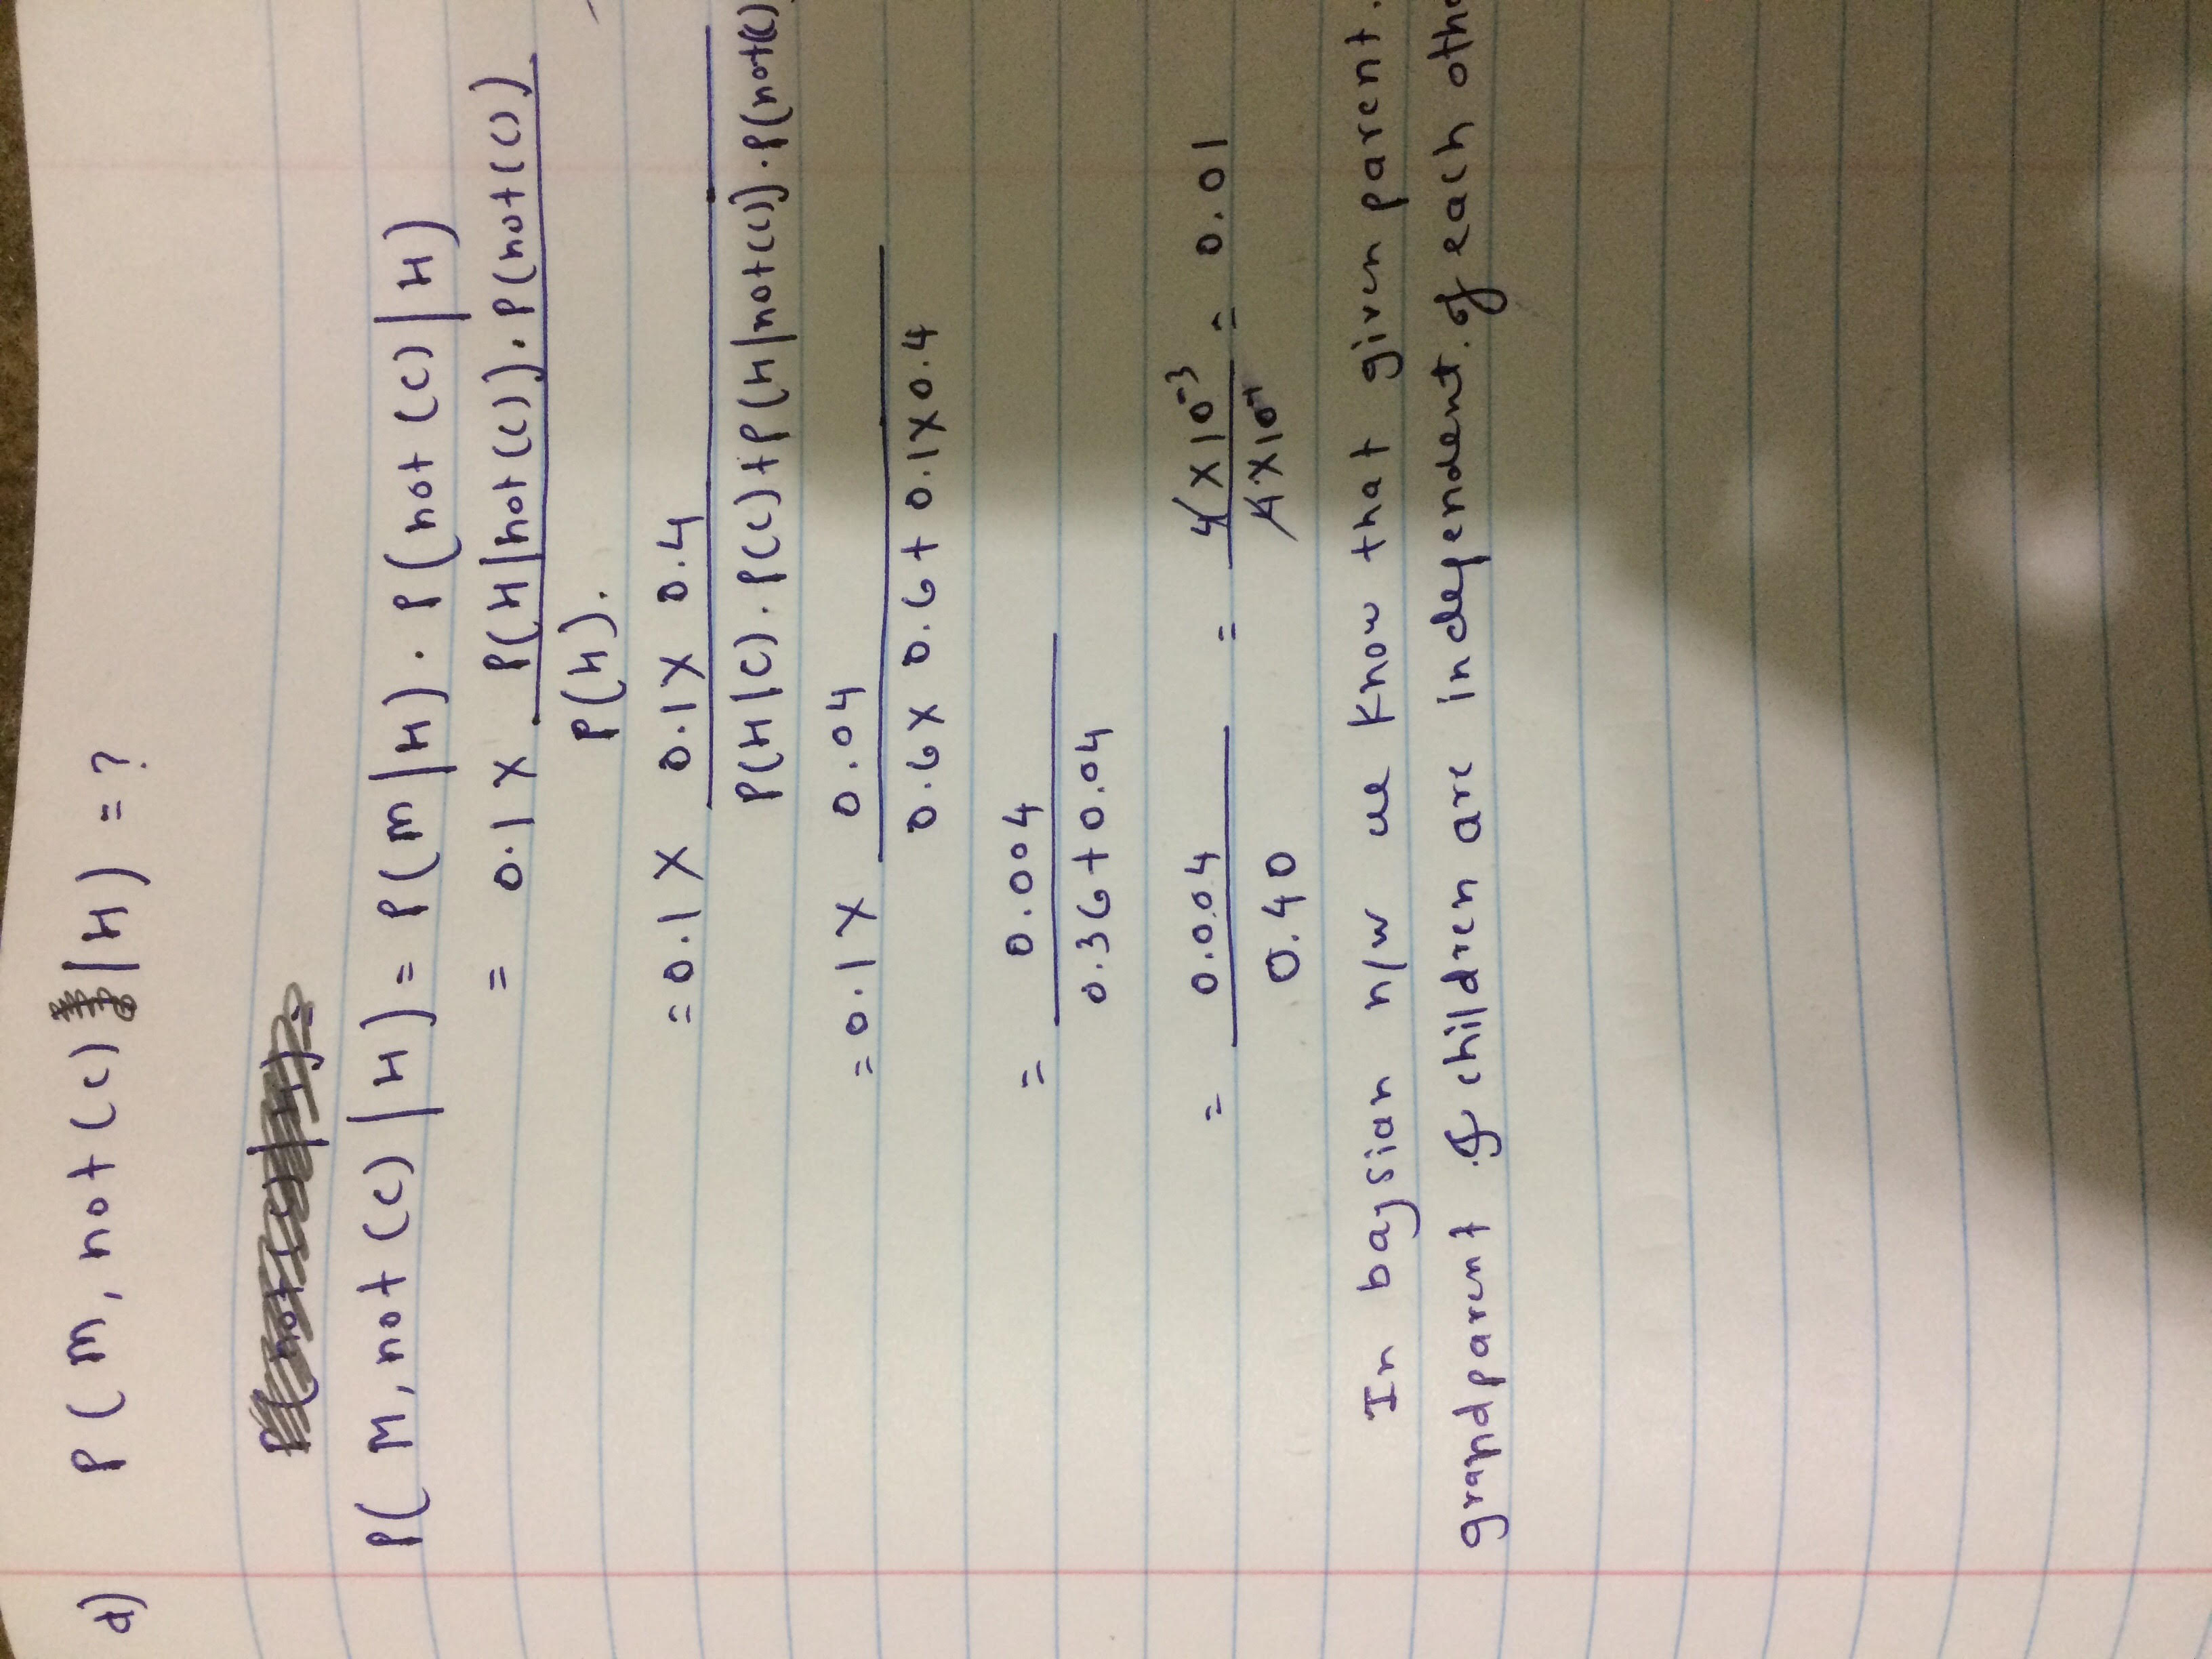 d) P(m, not(c) | H) = ?
P(M, not(c) | H) = P(m | H) . P(not(c) | H)
= 0.1 X P(H | not(c)) . P(not(c))
P(H).
= 0.1 X 0.1 X 0.4
P(H|c) . P(c) + P(H | not(c)) . P(not(c))
= 0.1 X 0.04
0.6 X 0.6 + 0.1 X 0.4
= 0.004
0.36 + 0.04
= 0.004 = 4 X 10^-3 = 0.01
0.40 4 X 10^-1
In baysian n/w we know that given parent.
grandparent & children are independent. of each